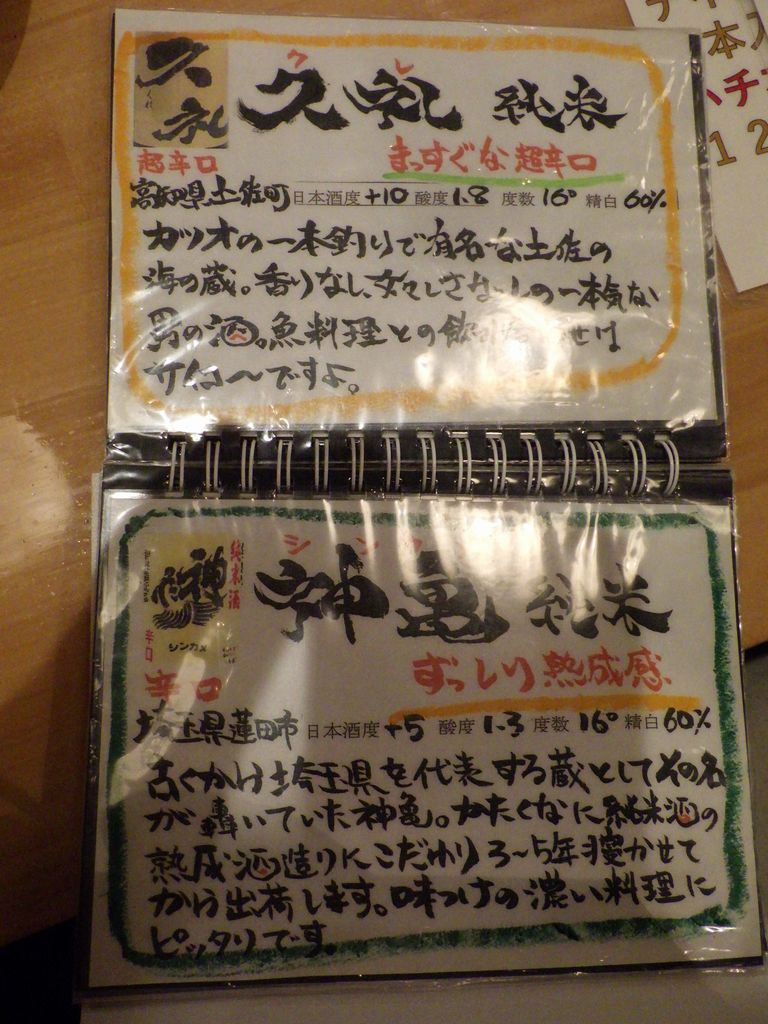 久礼
くれ
クレ
久礼 純米
超辛口
まっすぐな超辛口
高知県土佐町 日本酒度+10 酸度1.8 度数16° 精白60%
カツオの一本釣りで有名な土佐の
海の蔵。香りなし、女々しさなしの一本気な
男の酒。魚料理との飲み
サイコ〜ですよ。
純米酒
辛口
シンカメ
シンカメ
神亀 純米
辛口
ずっしり熟成感
埼玉県蓮田市 日本酒度+5 酸度1.3 度数16° 精白60%
古くから埼玉県を代表する蔵としてその名
が轟いていた神亀。かたくなに純米酒の
熟成酒造りにこだわり3〜5年寝かせて
から出荷します。味つけの濃い料理に
ピッタリです。
本
チ
12